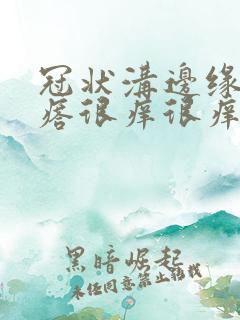 冠状溝邊缘
痞很痒很痒
黑暗崛起
未任同意禁止转找